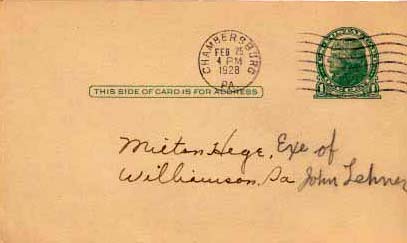 CHAMBERSBURG
FEB 25
4 PM
1928
PA.
THIS SIDE OF CARD IS FOR ADDRESS
Milton Hege, Exe of
Williamson, Pa John Lehner